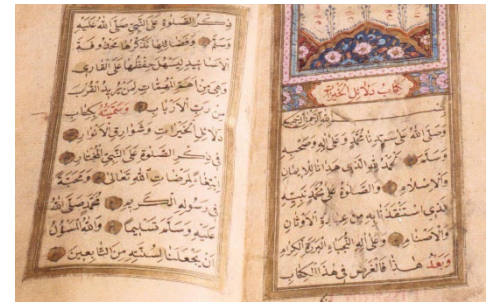 كتاب دلائل الخيرات
بسم الله الرحمن الرحيم
وَصَلَّى اللهُ عَلَى سَيِّدِنَا مُحَمَّدٍ وَعَلَى آلِهِ وَصَحْبِهِ
وَسَلَّمَ الْحَمْدُ لِلَّهِ الَّذِي هَدَانَا لِلْإِيمَانِ
وَالْإِسْلَامِ وَالصَّلَاةُ عَلَى مُحَمَّدٍ نَبِيِّهِ
الَّذِي اسْتَنْقَذَنَا بِهِ مِنْ عِبَادَةِ الْأَوْثَانِ
وَالْأَصْنَامِ وَعَلَى آلِهِ النُّجَبَاءِ الْبَرَرَةِ الْكِرَامِ
وَبَعْدُ هَذَا فَالْغَرَضُ فِي هَذَا الْكِتَابِ
ذِكْرُ الصَّلٰوةِ عَلَى النَّبِيِّ صَلَّى اللهُ عَلَيْهِ
وَسَلَّمَ وَفَضَائِلِهَا نَذْكُرُهَا مَحْذُوفَةَ
الْأَسَانِيدِ لِيَسْهُلَ حِفْظُهَا عَلَى الْقَارِئِ
وَهِيَ مِنْ أَهَمِّ الْمُهِمَّاتِ لِمَنْ يُرِيدُ الْقُرْبَ
مِنْ رَبِّ الْأَرْبَابِ وَسَمَّيْتُهُ بِكِتَابِ
دَلَائِلِ الْخَيْرَاتِ وَشَوَارِقِ الْأَنْوَارِ
فِي ذِكْرِ الصَّلٰوةِ عَلَى النَّبِيِّ الْمُخْتَارِ
ابْتِغَاءً لِمَرْضَاتِ اللهِ تَعَالَى وَمَحَبَّةً
فِي رَسُولِهِ الْكَرِيمِ مُحَمَّدٍ صَلَّى اللهُ
عَلَيْهِ وَسَلَّمَ تَسْلِيمًا وَاللهُ الْمَسْؤُلُ
أَنْ يَجْعَلَنَا لِسُنَّتِهِ مِنَ التَّابِعِينَ